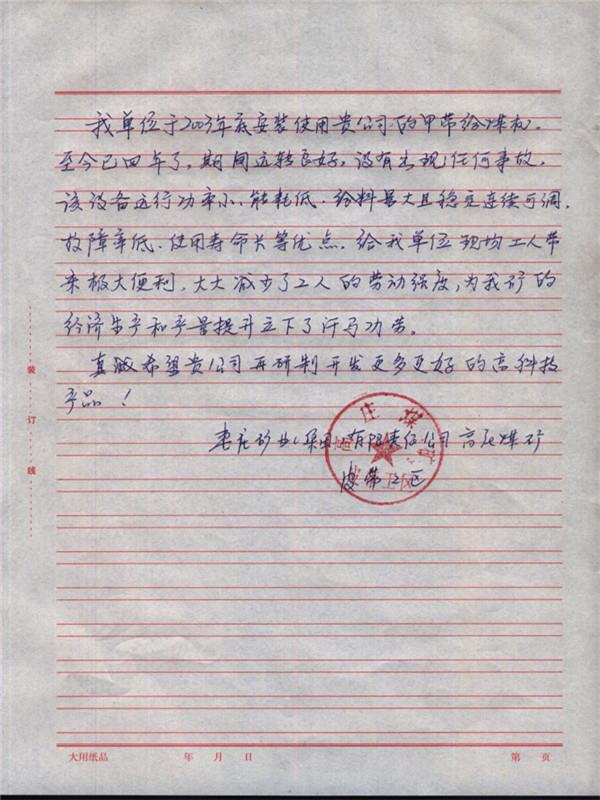 我单位于2003年底安装使用贵公司的甲带给煤机。
至今已四年了，期间运转良好，没有出现任何事故，
该设备运行功率小、能耗低、给料量大且稳定连续可调、
故障率低、使用寿命长等优点，给我单位现场工人带
来极大便利，大大减少了工人的劳动强度，为我矿的
经济生产和产量提升立下了汗马功劳。
真诚希望贵公司再研制开发更多更好的高科技
产品！
枣庄矿业集团有限责任公司高庄煤矿
皮带工区
高庄煤矿
装订线
大用纸品 年 月 日 第 页